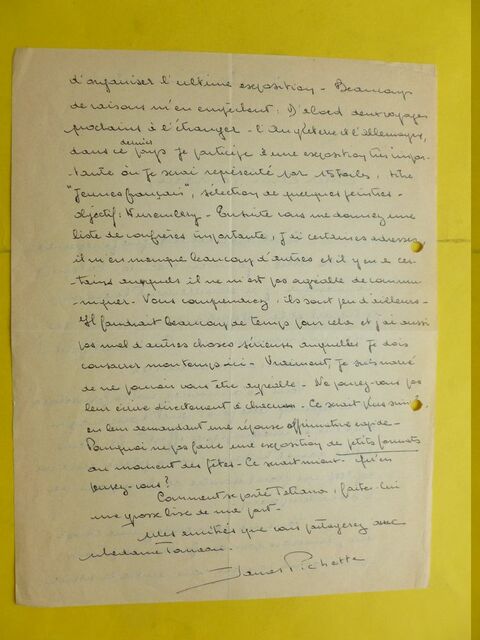 d'organiser l'ultime exposition - Beaucoup
de raisons m'en empêchent : D'abord deux voyages
prochains à l'étranger - l'Angleterre et l'Allemagne,
dans ce dernier pays je participe à une exposition très impor-
tante où je serai représenté par 15 toiles, titre
"Jeunes français", sélection de quelques peintres -
objectif : Nuremberg - Ensuite vous me donnez une
liste de confrères importante, j'ai certaines adresses,
il m'en manque beaucoup d'autres et il y en a cer-
tains auxquels il ne m'est pas agréable de commu-
niquer - Vous comprendrez, ils sont peu d'ailleurs -
Il faudrait beaucoup de temps pour cela et j'ai aussi
pas mal d'autres choses sérieuses auxquelles je dois
consacrer mon temps ici - Vraiment, je suis navré
de ne pouvoir vous être agréable - Ne pouvez-vous pas
leur écrire directement à chacun - Ce serait plus simple
en leur demandant une réponse affirmative rapide -
Pourquoi ne pas faire une exposition de petits formats
au moment des fêtes - Ce serait mieux - Qu'en
pensez-vous ?
Comment se porte Tatiana, faites-lui
une grosse bise de ma part -
Mes amitiés que vous partagerez avec
Madame
James Pichette